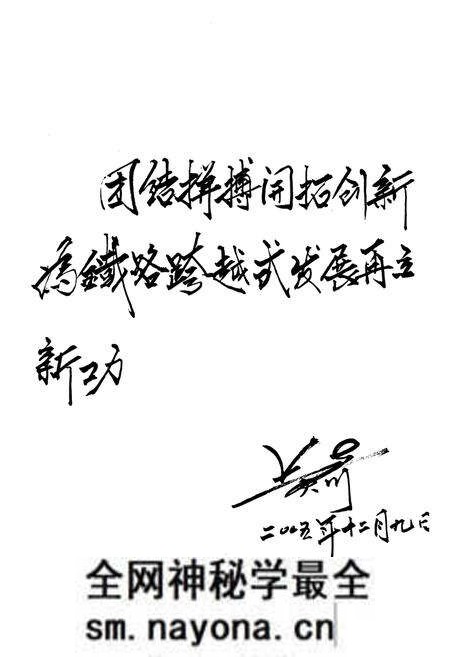 团结拼搏开拓创新
為鐵路跨越式发展再立
新功
二〇〇五年十二月九日
全网神秘学最全
sm.nayona.cn